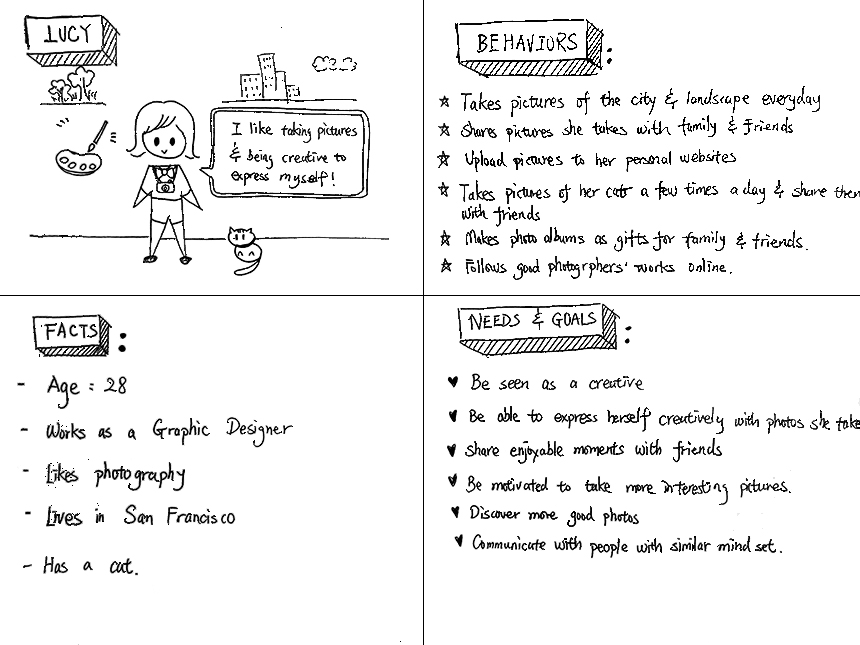 LUCY
I like taking pictures
& being creative to
express myself!
BEHAVIORS :
☆ Takes pictures of the city & landscape everyday
☆ Shares pictures she takes with family & friends
☆ Upload pictures to her personal websites
☆ Takes pictures of her cat a few times a day & share them
with friends
☆ Makes photo albums as gifts for family & friends.
☆ Follows good photogrphers' works online.
FACTS :
- Age : 28
- Works as a Graphic Designer
- Likes photography
- Lives in San Francisco
- Has a cat.
NEEDS & GOALS :
♥ Be seen as a creative
♥ Be able to express herself creatively with photos she take
♥ Share enjoyable moments with friends
♥ Be motivated to take more interesting pictures.
♥ Discover more good photos
♥ Communicate with people with similar mind set.